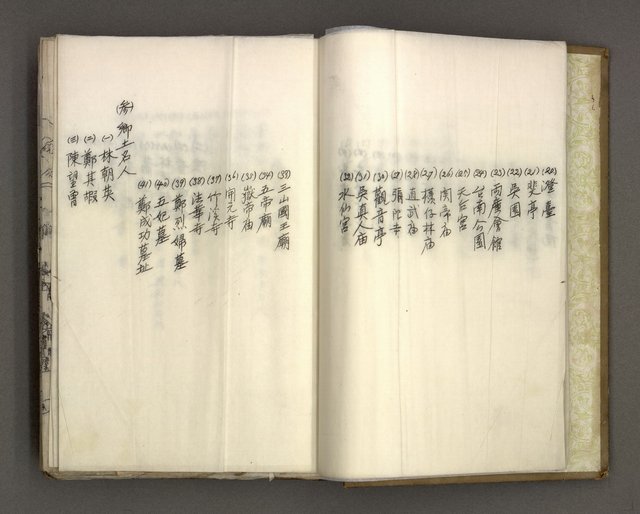 (20) 澄臺
(21) 斐亭
(22) 吳園
(23) 兩廣會館
(24) 台南公園
(25) 天后宮
(26) 関帝庙
(27) 檨仔林庙
(28) 直武庙
(29) 彌陀寺
(30) 觀音亭
(31) 吳真人庙
(32) 水仙宮
(33) 三山國王廟
(34) 五帝廟
(35) 嶽帝庙
(36) 開元寺
(37) 竹溪寺
(38) 法華寺
(39) 鄭烈婦墓
(40) 五妃墓
(41) 鄭成功墓址
(参) 鄉土名人
(一) 林朝英
(二) 鄭其嘏
(三) 陳望曾